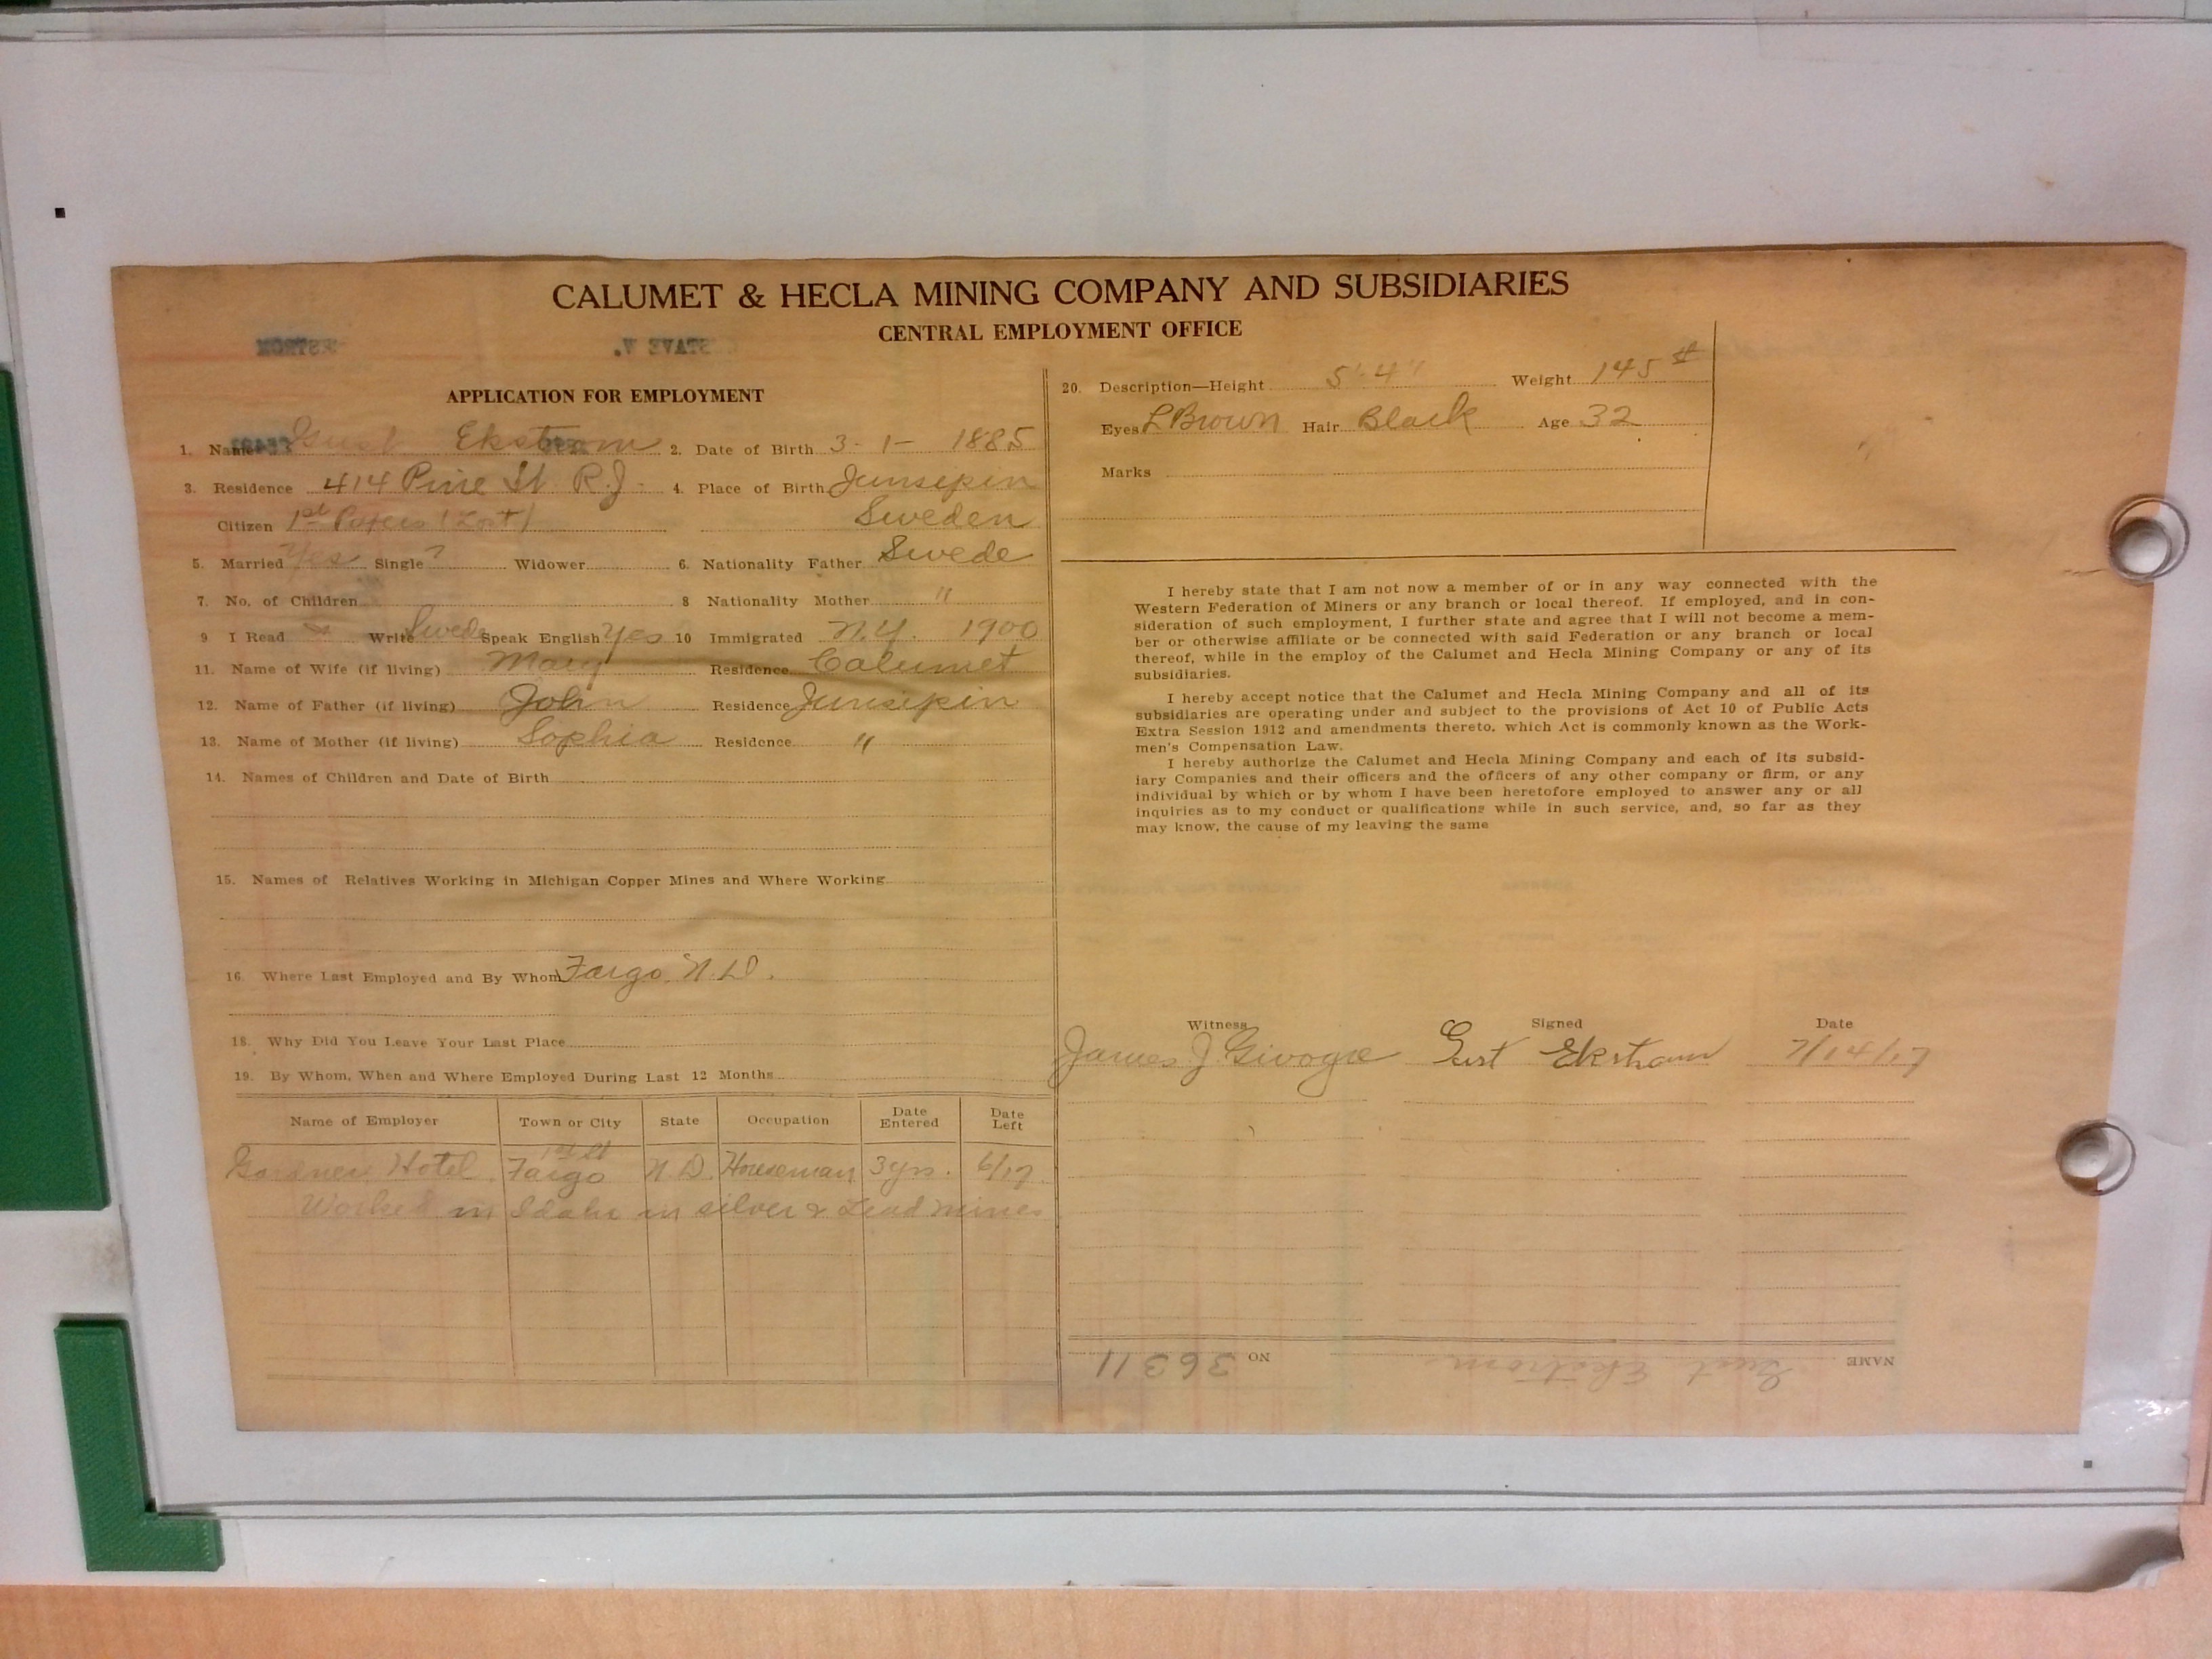 CALUMET & HECLA MINING COMPANY AND SUBSIDIARIES
CENTRAL EMPLOYMENT OFFICE
APPLICATION FOR EMPLOYMENT
1. Name Gust Ekstrom 2. Date of Birth 3-1-1885
3. Residence 414 Pine St R.J. 4. Place of Birth Junsepin
Citizen 1st Papers (Lost) Sweden
5. Married Yes Single ? Widower 6. Nationality Father Swede
7. No. of Children 8 Nationality Mother "
9 I Read Write Swede Speak English Yes 10 Immigrated N.Y. 1900
11. Name of Wife (if living) Mary Residence Calumet
12. Name of Father (if living) John Residence Junsepin
13. Name of Mother (if living) Sophia Residence "
14. Names of Children and Date of Birth
15. Names of Relatives Working in Michigan Copper Mines and Where Working
16. Where Last Employed and By Whom Fargo N.D.
18. Why Did You Leave Your Last Place
19. By Whom, When and Where Employed During Last 12 Months
Name of Employer Town or City State Occupation Date Entered Date Left
1st St
Gardner Hotel Fargo N.D. Houseman 3 yrs. 6/17
Worked in Idaho in silver & Lead mines
20. Description—Height 5'4" Weight 145 #
Eyes L Brown Hair Black Age 32
Marks
I hereby state that I am not now a member of or in any way connected with the
Western Federation of Miners or any branch or local thereof. If employed, and in con-
sideration of such employment, I further state and agree that I will not become a mem-
ber or otherwise affiliate or be connected with said Federation or any branch or local
thereof, while in the employ of the Calumet and Hecla Mining Company or any of its
subsidiaries.
I hereby accept notice that the Calumet and Hecla Mining Company and all of its
subsidiaries are operating under and subject to the provisions of Act 10 of Public Acts
Extra Session 1912 and amendments thereto, which Act is commonly known as the Work-
men's Compensation Law.
I hereby authorize the Calumet and Hecla Mining Company and each of its subsid-
iary Companies and their officers and the officers of any other company or firm, or any
individual by which or by whom I have been heretofore employed to answer any or all
inquiries as to my conduct or qualifications while in such service, and, so far as they
may know, the cause of my leaving the same
Witness Signed Date
James J. Gust Ekstrom 7/14/17
NAME Gust Ekstrom NO 36311